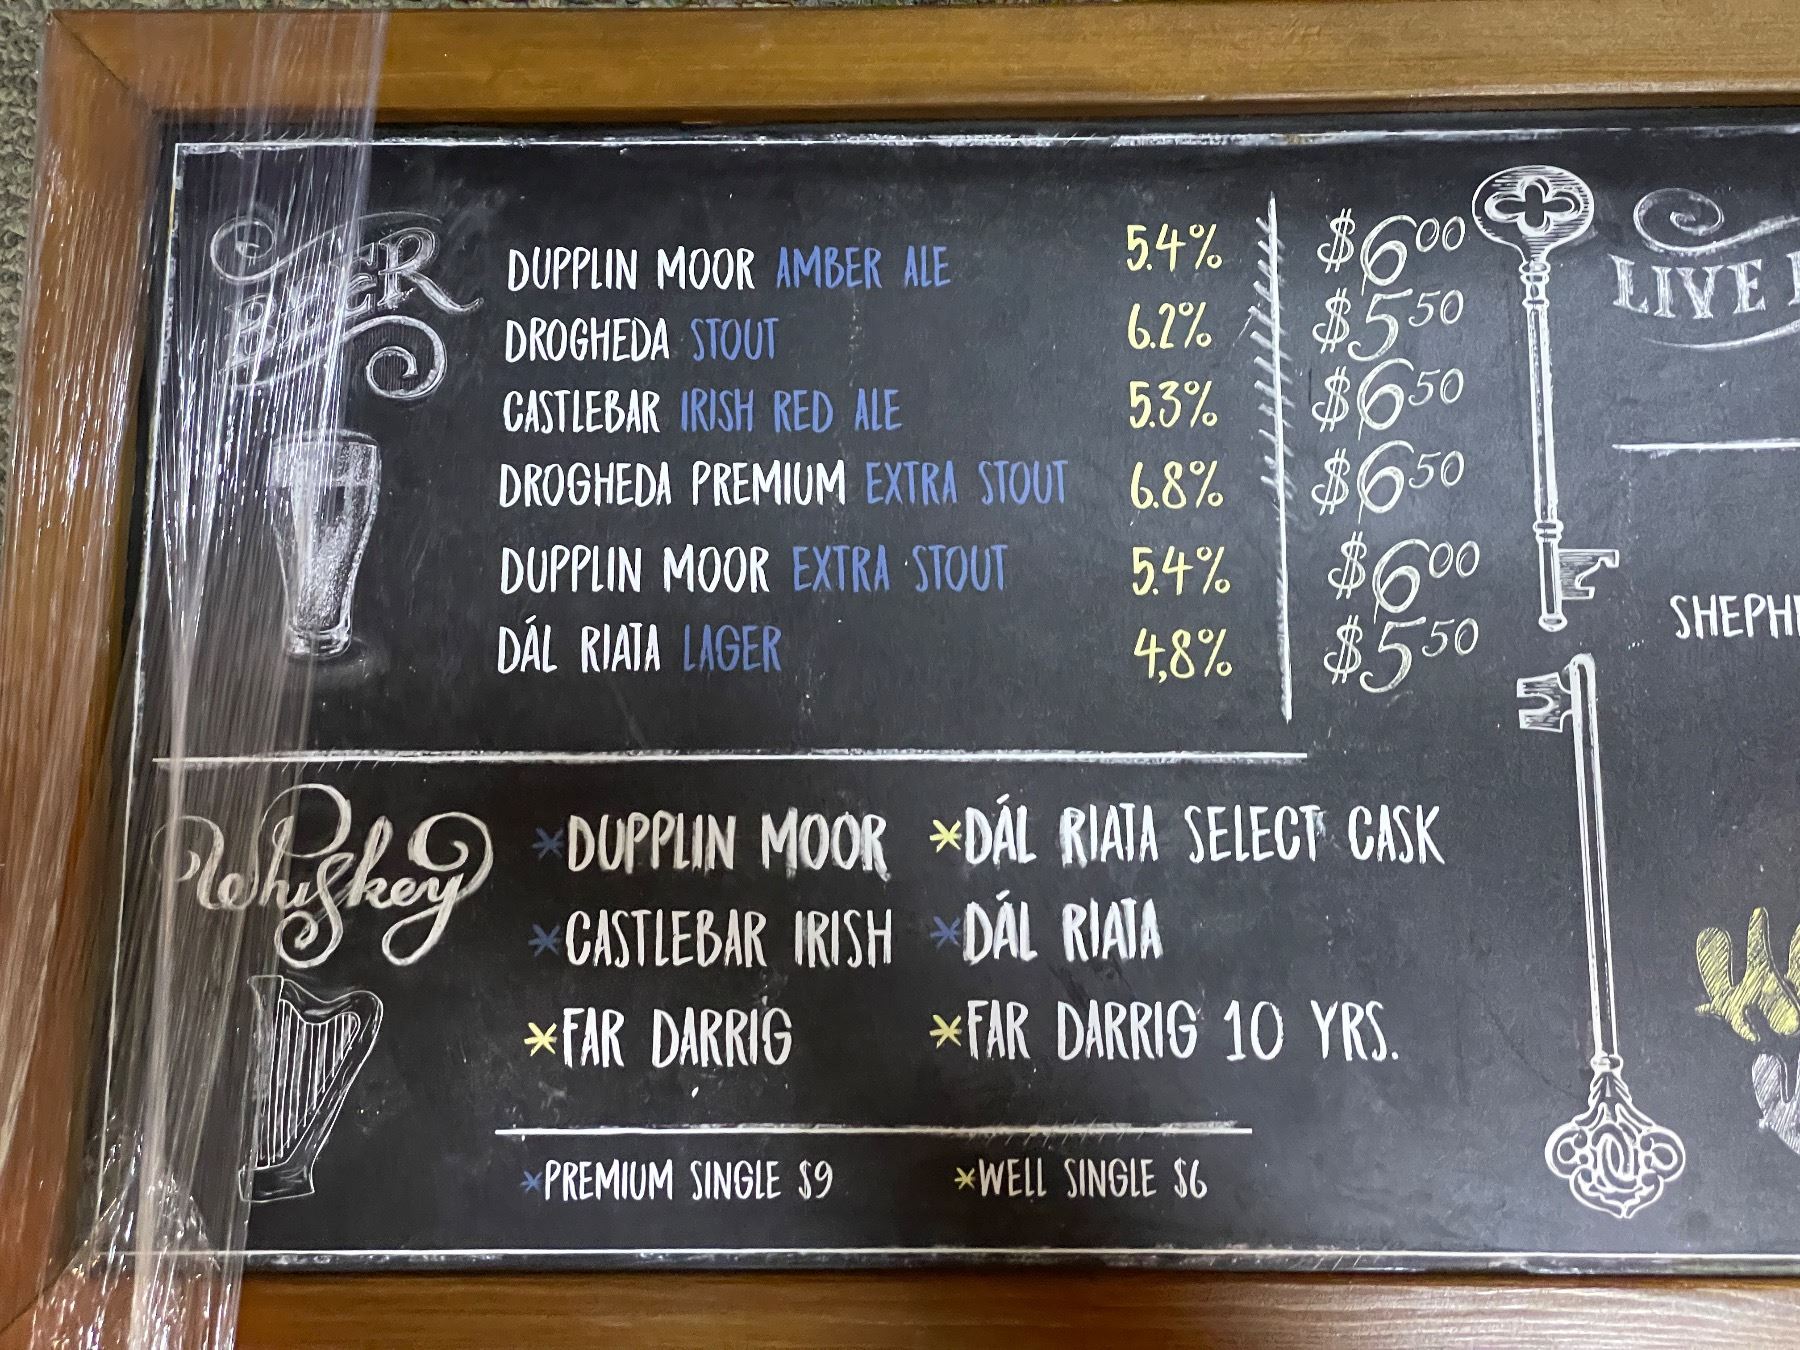 BEER
DUPPLIN MOOR AMBER ALE 5.4% $6.00
DROGHEDA STOUT 6.2% $5.50
CASTLEBAR IRISH RED ALE 5.3% $6.50
DROGHEDA PREMIUM EXTRA STOUT 6.8% $6.50
DUPPLIN MOOR EXTRA STOUT 5.4% $6.00
DÁL RIATA LAGER 4,8% $5.50
Whiskey
*DUPPLIN MOOR *DÁL RIATA SELECT CASK
*CASTLEBAR IRISH *DÁL RIATA
*FAR DARRIG *FAR DARRIG 10 YRS.
*PREMIUM SINGLE $9 *WELL SINGLE $6
LIVE